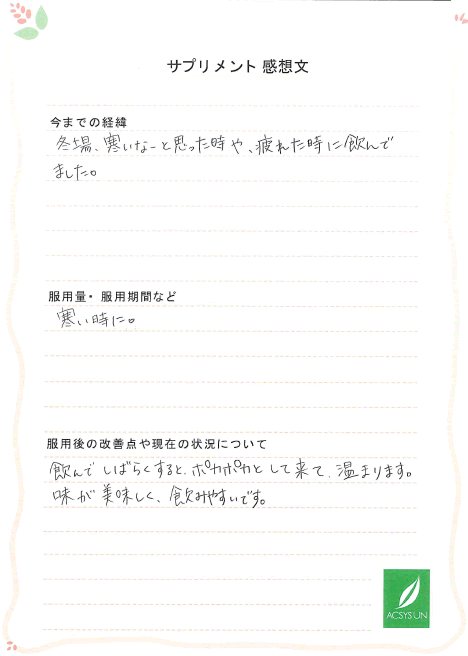 サプリメント 感想文
今までの経緯
冬場、寒いなーと思った時や、疲れた時に飲んで
ました。
服用量・服用期間など
寒い時に。
服用後の改善点や現在の状況について
飲んでしばらくすると、ポカポカとして来て、温まります。
味が美味しく、飲みやすいです。
ACSYSUN